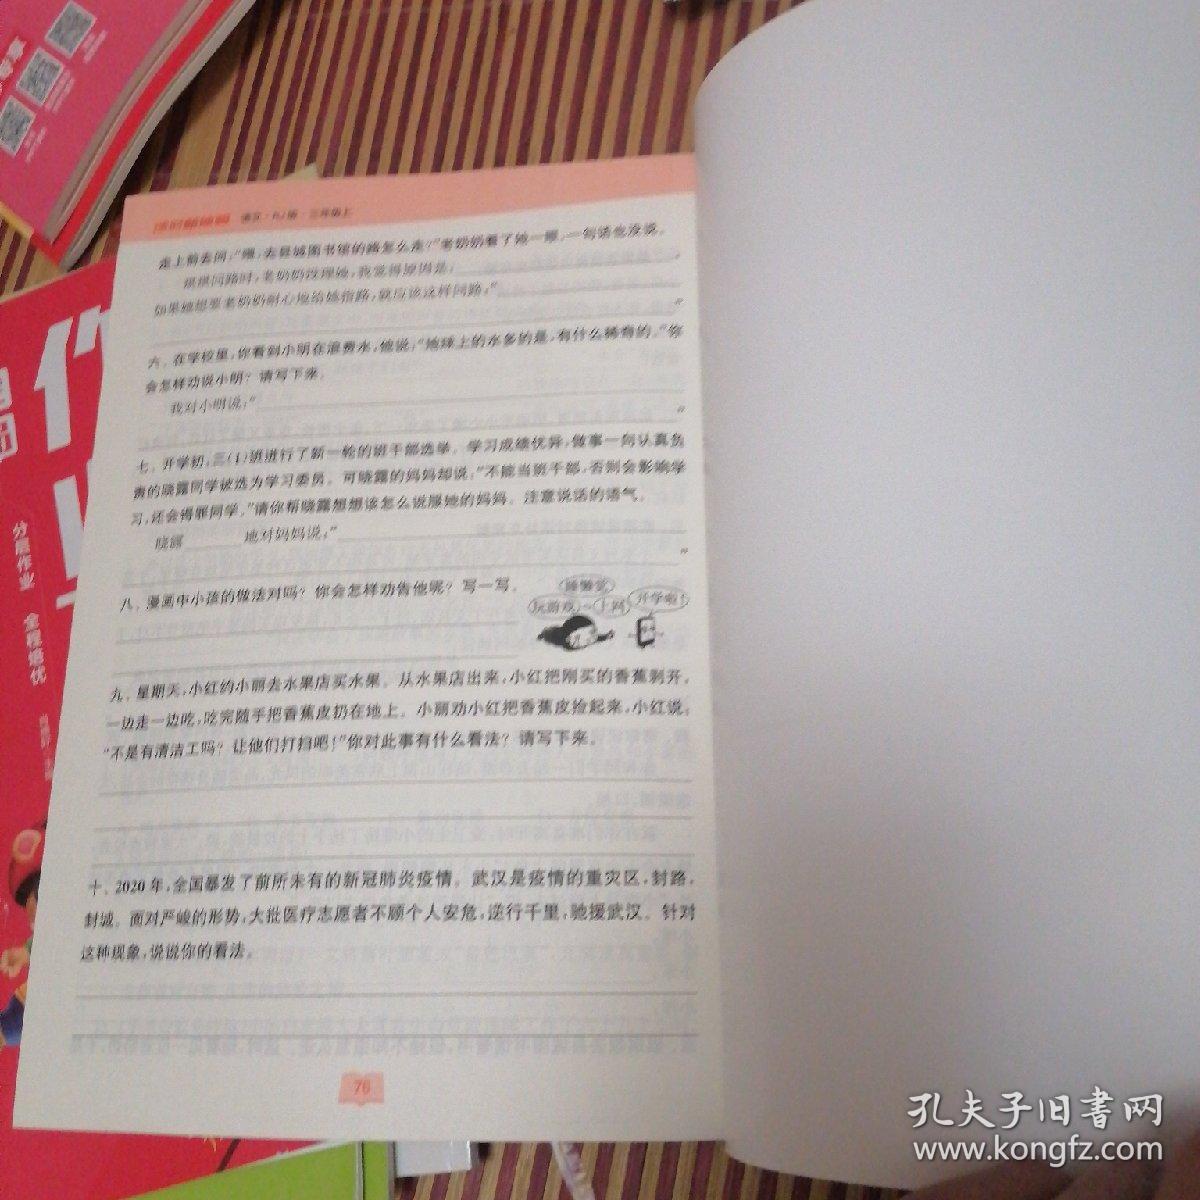 语文·RJ版·三年级上
走上前去问:“喂,去县城图书馆的路怎么走?”老奶奶看了她一眼,一句话也没说。
问路时,老奶奶没理她,我觉得原因是:
如果她想要老奶奶耐心地给她指路,就应该这样问路:“
”
六、在学校里,你看到小明在浪费水,他说:“地球上的水多的是,有什么稀奇的。”你
会怎样劝说小明?请写下来。
我对小明说:“
”
七、开学初,三(1)班进行了新一轮的班干部选举。学习成绩优异,做事一向认真负
责的晓露同学被选为学习委员。可晓露的妈妈却说:“不能当班干部,否则会影响学
习,还会得罪同学。”请你帮晓露想想该怎么说服她的妈妈。注意说话的语气。
晓露 地对妈妈说:“
”
八、漫画中小孩的做法对吗?你会怎样劝告他呢?写一写。
睡懒觉
玩游戏 上网 开学啦!
九、星期天,小红约小丽去水果店买水果。从水果店出来,小红把刚买的香蕉剥开,
一边走一边吃,吃完随手把香蕉皮扔在地上。小丽劝小红把香蕉皮捡起来,小红说:
“不是有清洁工吗?让他们打扫吧!”你对此事有什么看法?请写下来。
十、2020年,全国暴发了前所未有的新冠肺炎疫情。武汉是疫情的重灾区,封路,
封城。面对严峻的形势,大批医疗志愿者不顾个人安危,逆行千里,驰援武汉。针对
这种现象,说说你的看法。
76
分层作业 全程培优
孔夫子旧书网
www.kongfz.com